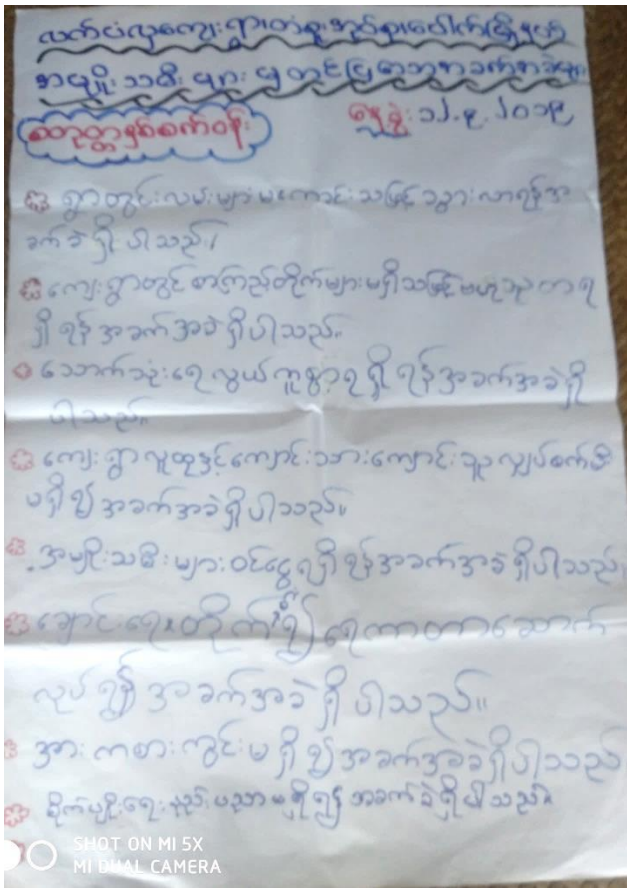 လက်ပံလှကျေးရွာတံခွန်အုပ်စုပေါက်မြို့နယ်
အမျိုးသမီးများမှတင်ပြသောအခက်အခဲများ
စတုတ္ထနှစ်စက်ဝန်း နေ့စွဲ၊ ၁၂.၉.၂၀၁၉
ရွာတွင်းလမ်းများမကောင်းသဖြင့်သွားလာရန်အ
ခက်ခဲရှိပါသည်။
ကျေးရွာတွင်စာကြည့်တိုက်များမရှိသဖြင့်ဗဟုသုတရ
ရှိရန်အခက်အခဲရှိပါသည်။
သောက်သုံးရေလွယ်ကူစွာရရှိရန်အခက်အခဲရှိ
ပါသည်။
ကျေးရွာလူထုနှင့်ကျောင်းသားကျောင်းသူလျှပ်စက်မီး
မရှိ၍အခက်အခဲရှိပါသည်။
အမျိုးသမီးများဝင်ငွေရရှိရန်အခက်အခဲရှိပါသည်
ချောင်းရေတိုက်စား၍ရေကာတာဆောက်
လုပ်ရန်အခက်အခဲရှိပါသည်။
အားကစားကွင်းမရှိ၍အခက်အခဲရှိပါသည်
စိုက်ပျိုးရေးနည်းပညာမရှိ၍အခက်ခဲရှိပါသည်။
SHOT ON MI 5X
MI DUAL CAMERA